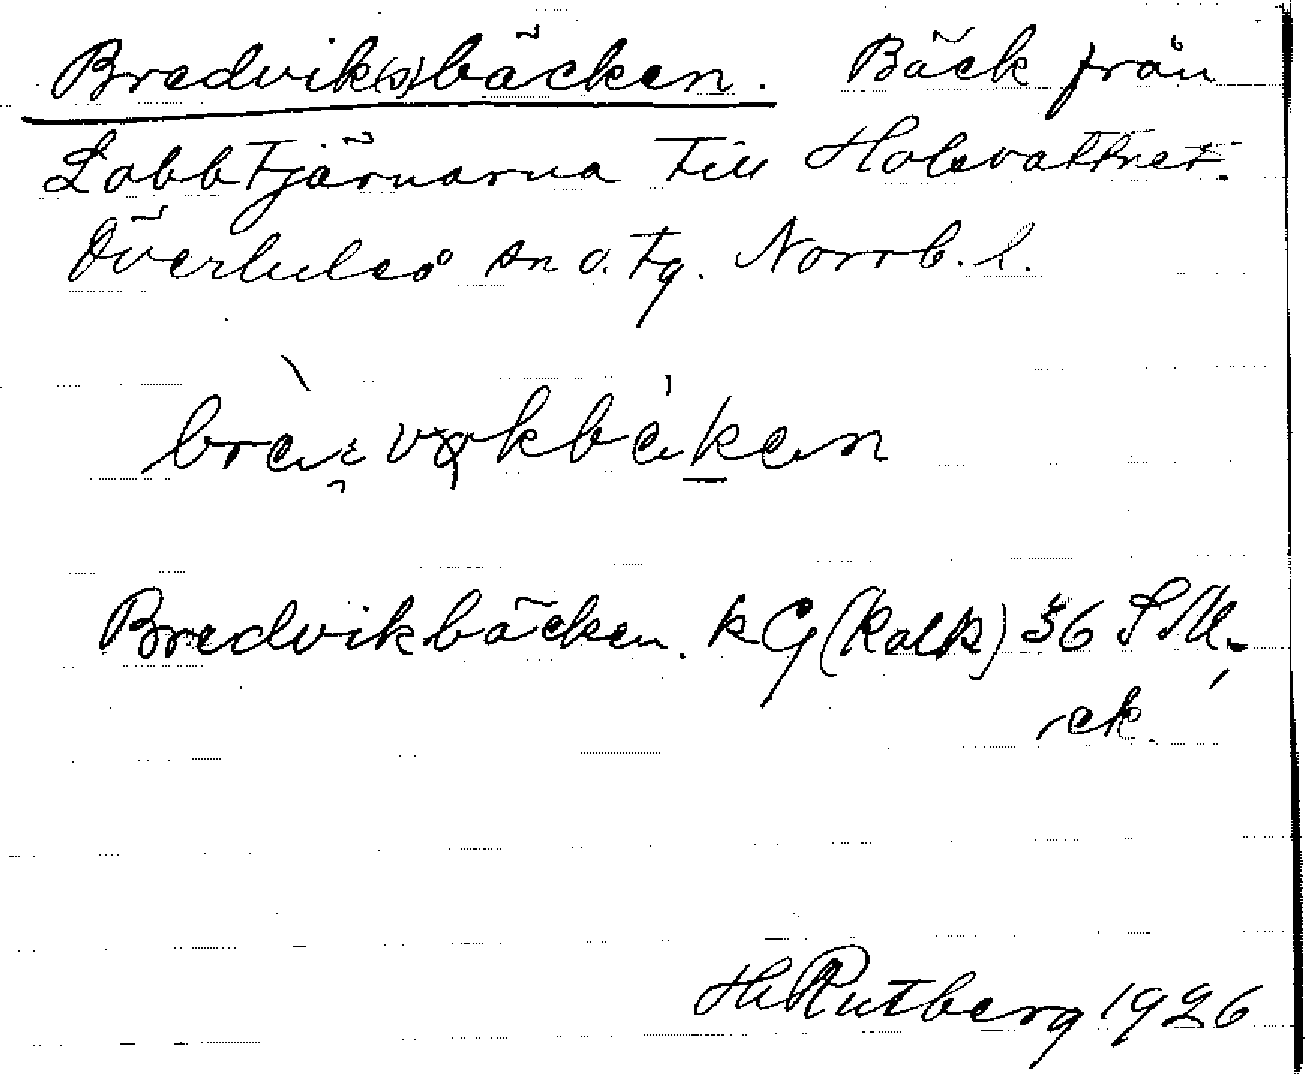 Bredvik(s)bäcken. Bäck från
Lobbtjärnarna till Holevattnet.
Överluleå sn o. tg. Norrb. l.
Bredvikbäcken. kG (kalk) 36 S.M.
ek.
H Rutberg 1926